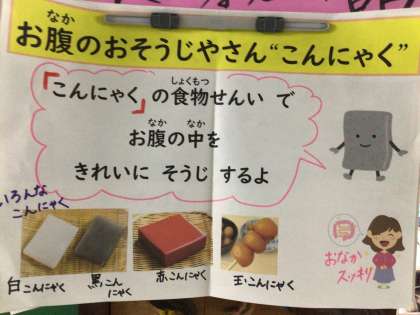 なか
お腹のおそうじやさん“こんにゃく”
しょくもつ
「こんにゃく」の食物せんい で
なか なか
お腹の中を
きれいに そうじ するよ
いろんな
こんにゃく
白こんにゃく
黒こん
にゃく
赤こんにゃく
玉こんにゃく
おなか
スッキリ